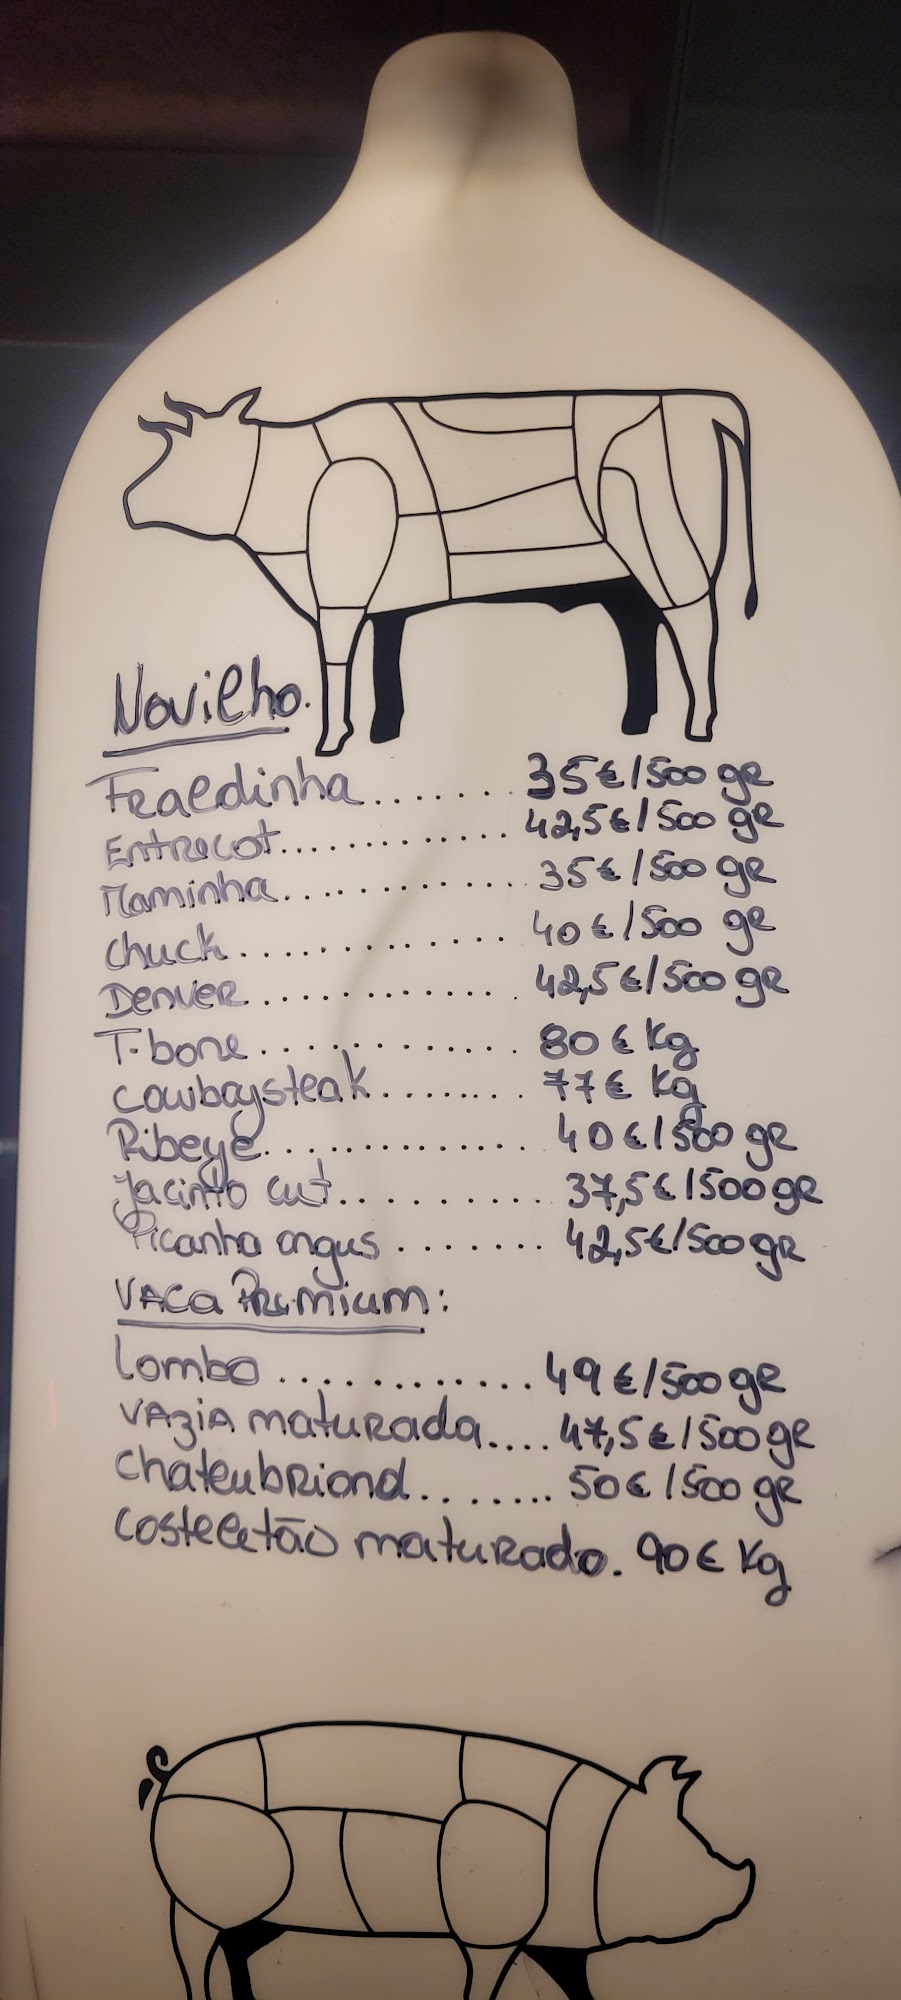 Novilho.
Fraldinha........ 35€/500 gr
Entrecot............. 42,5€/500 gr
Maminha............. 35€/500 gr
chuck............. 40€/500 gr
Denver............. 42,5€/500 gr
T-bone............. 80€ Kg
cowboysteak......... 77€ Kg
Ribeye.............. 40€/500 gr
Jacinto cut........... 37,5€/500gr
Picanha angus........ 42,5€/500gr
VACA Premium:
Lombo ............. 49€/500gr
VAZIA maturada.... 47,5€/500gr
Chateubriond........ 50€/500 gr
Costeletão maturado. 90€ Kg